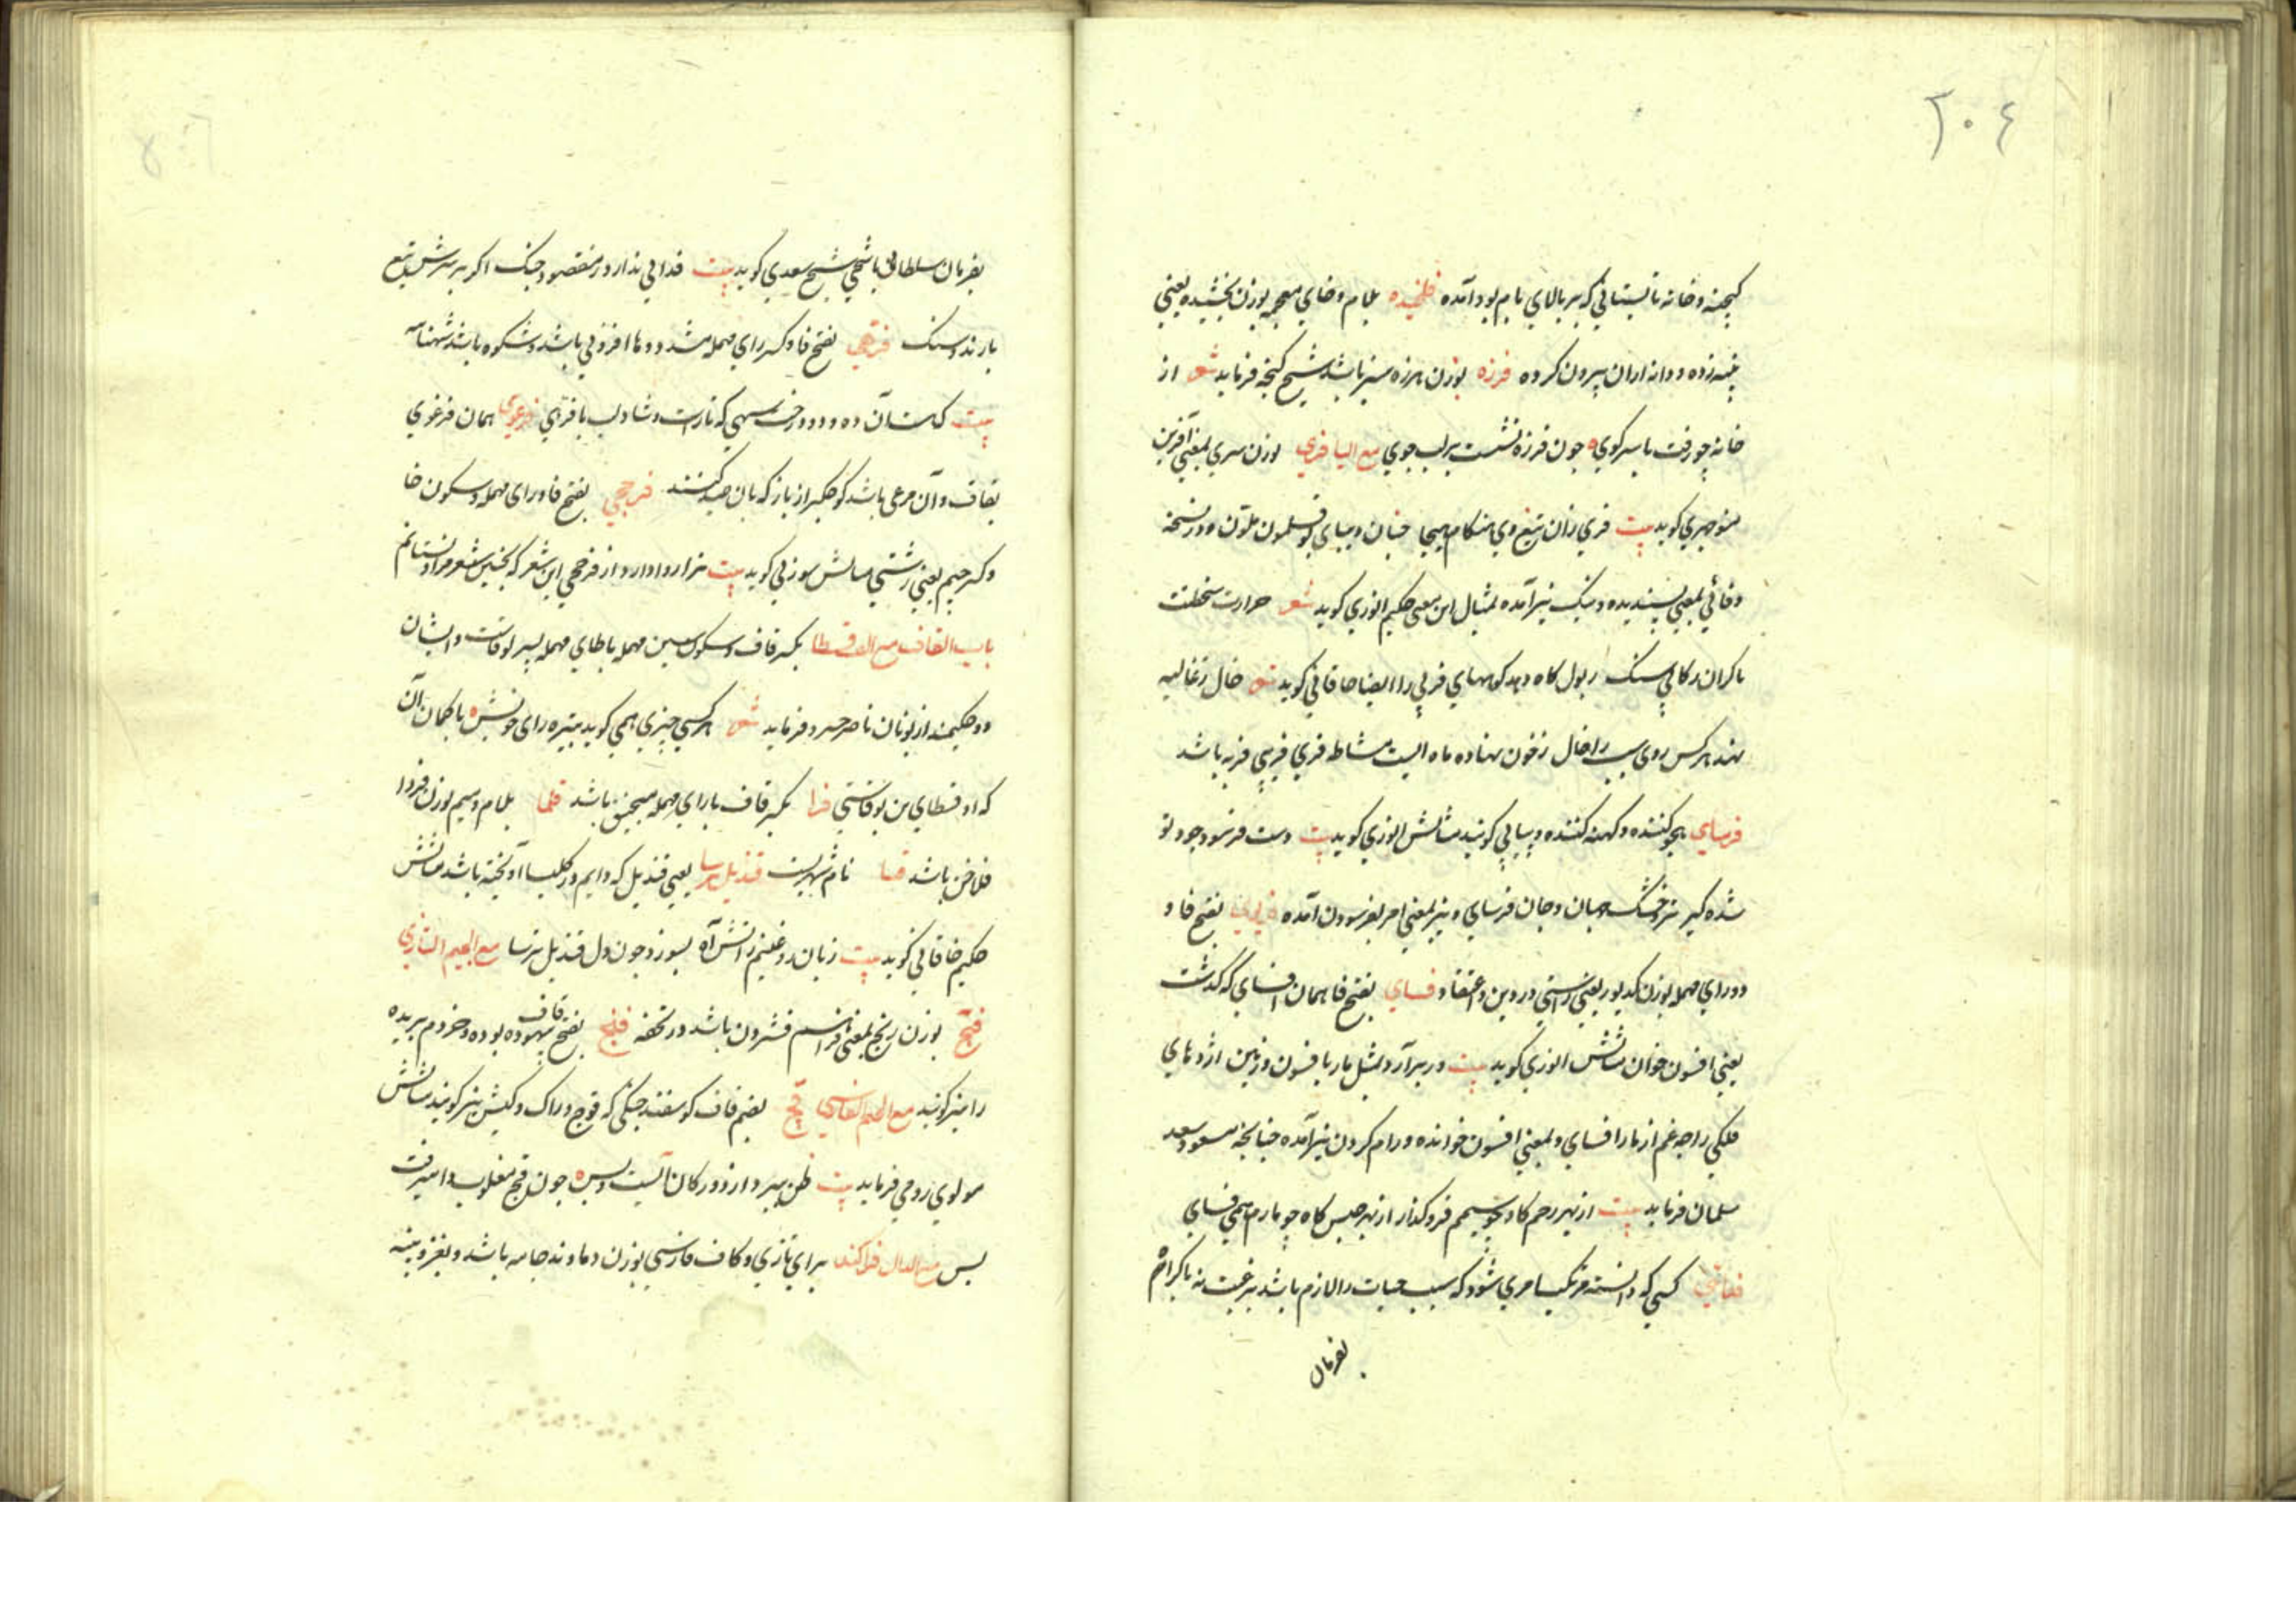 ٢٠٤
کنجینه و خانه تابستانی که بر بالای بام بود آمده فلخیده بلام و خای معجمه بوزن بخشیده یعنی
پنبه زده و دانه ازان بیرون کرده فرزه بوزن هرزه سبزه باشد شیخ کنجه فرماید شعر از
خانه چو رفت با سر کوی ه جون فرزه نشست بر لب جوی مع الیا فری بوزن سری بمعنی آفرین
منوچهری کوید بیت فری زان تیغ وی هنکام هیجا جنان دیبای بوقلمون ملون ه و در نسخه
وفائی بمعنی پسندیده و نیک نیز آمده مثال این معنی حکیم انوری کوید شعر حرارت سخطت
با کران رکابی سنک ذبول کاه دهد کوههای فربی را ایضا خاقانی کوید شعر خال ز غالیه
نهند هر کس روی سیب را خال ز خون نهاده ماه اینت مشاطه فری فربی فربه باشد
فرسای محو کننده و کهنه کننده و پیاپی کویند مثالش انوری کوید بیت دست فرسود جود تو
شده کیر تر و خشک جهان و جان فرسای و نیز بمعنی امر بفرسودن آمده بفتح فا و
دو رای مهمله بوزن کدیور یعنی راستی در دین و اعتقاد فسای بفتح فا همان افسای که کذشت
یعنی افسون خوان مثالش انوری کوید بیت ور برآرد بمثل مار بافسون ز زمین اژدهای
فلکی را چه غم از مار افسای و بمعنی افسون خوانده و رام کردن نیز آمده چنانچه مسعود سعد
سلمان فرماید بیت از بهر زخم کاه چو سیمم فرو کذار از بهر حبس کاه چو مارم همی فسای
کسی که دانسته مرتکب امری شود که سبب حیات را لازم باشد برغبت نه باکراه
بفرمان
بفرمان سلطانی یا شیخی شیخ سعدی کوید بیت فدائی ندارد ز مقصود چنک اکر بر سرش تیغ
بارند و سنک فرهی بفتح فا و کسر رای مهمله مشدد و ها افزونی باشد و شکوه باشد شهنامه
بیت که آن ده و دو درخت سهی که تازست و شاداب با فرهی همان فرغوی
بقاف و آن مرغی باشد کوچکتر از باز که بان صید کنند فرحجی بفتح فا و رای مهمله و سکون خا
و کسر جیم یعنی زشتی مثالش سوزنی کوید بیت این شعر که بجنین شعر مرا دو نستانم
باب القاف مع الف قسطا بکسر قاف و سکون سین مهمله با طای مهمله پسر لوقاست و ایشان
دو حکیمند از یونان ناصر خسرو فرماید شعر هر کسی چیزی همی کوید بتیره رای خویش ه با کمان آن
که او قسطای بن لوقاستی قرا بکسر قاف با رای مهمله منجنیق باشد قلما بلام و میم بوزن فردا
فلاخن باشد قسا نام شهریست قندیل ترسا یعنی قندیل که دایم در کلیسا آویخته باشد مثالش
حکیم خاقانی کوید بیت زبان روغنینم ز آتش آه بسوزد جون دل قندیل ترسا مع الجیم التازی
بوزن رنج بمعنی فراهم فشردن باشد در تحفه بفتح قاف بیهوده بوده و خر دم بریده
را نیز کویند مع الجیم الفارسی قچ بضم قاف کوسفند جنکی که قوچ و راک و کبش نیز کویند مثالش
مولوی رومی فرماید بیت
بس مع الدال قزاکند برای تازی و کاف فارسی بوزن دماوند جامه باشد